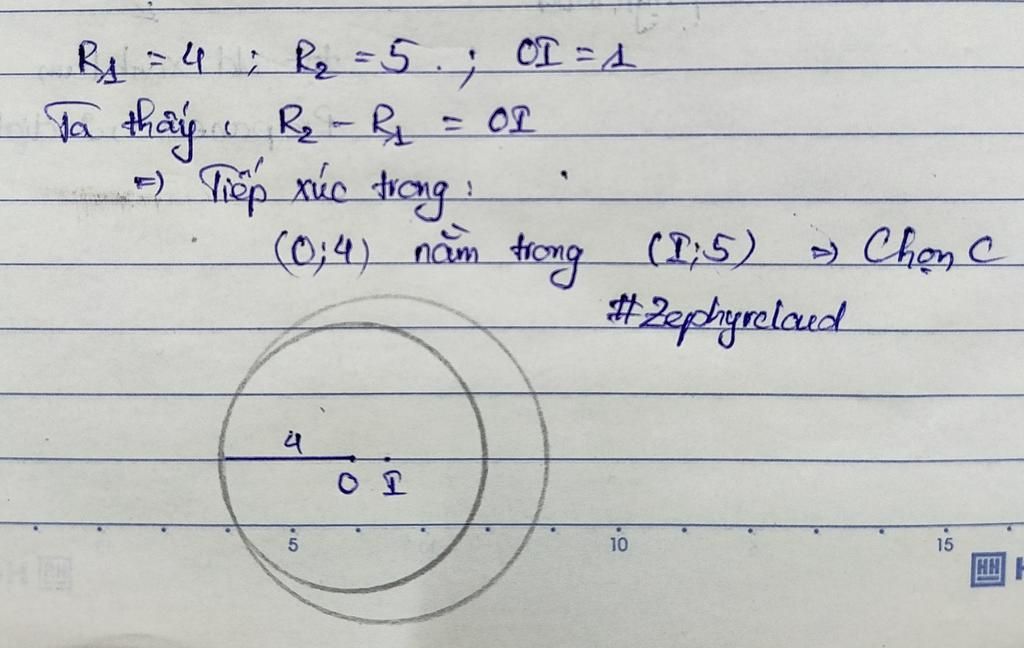 R₁ = 4 ; R₂ = 5 . ; OI = 1
Ta thấy : R₂ - R₁ = OI
=> Tiếp xúc trong :
(O;4) nằm trong (I;5) => Chọn C
#Zephyrcloud
4
O I
5 10 15
HH